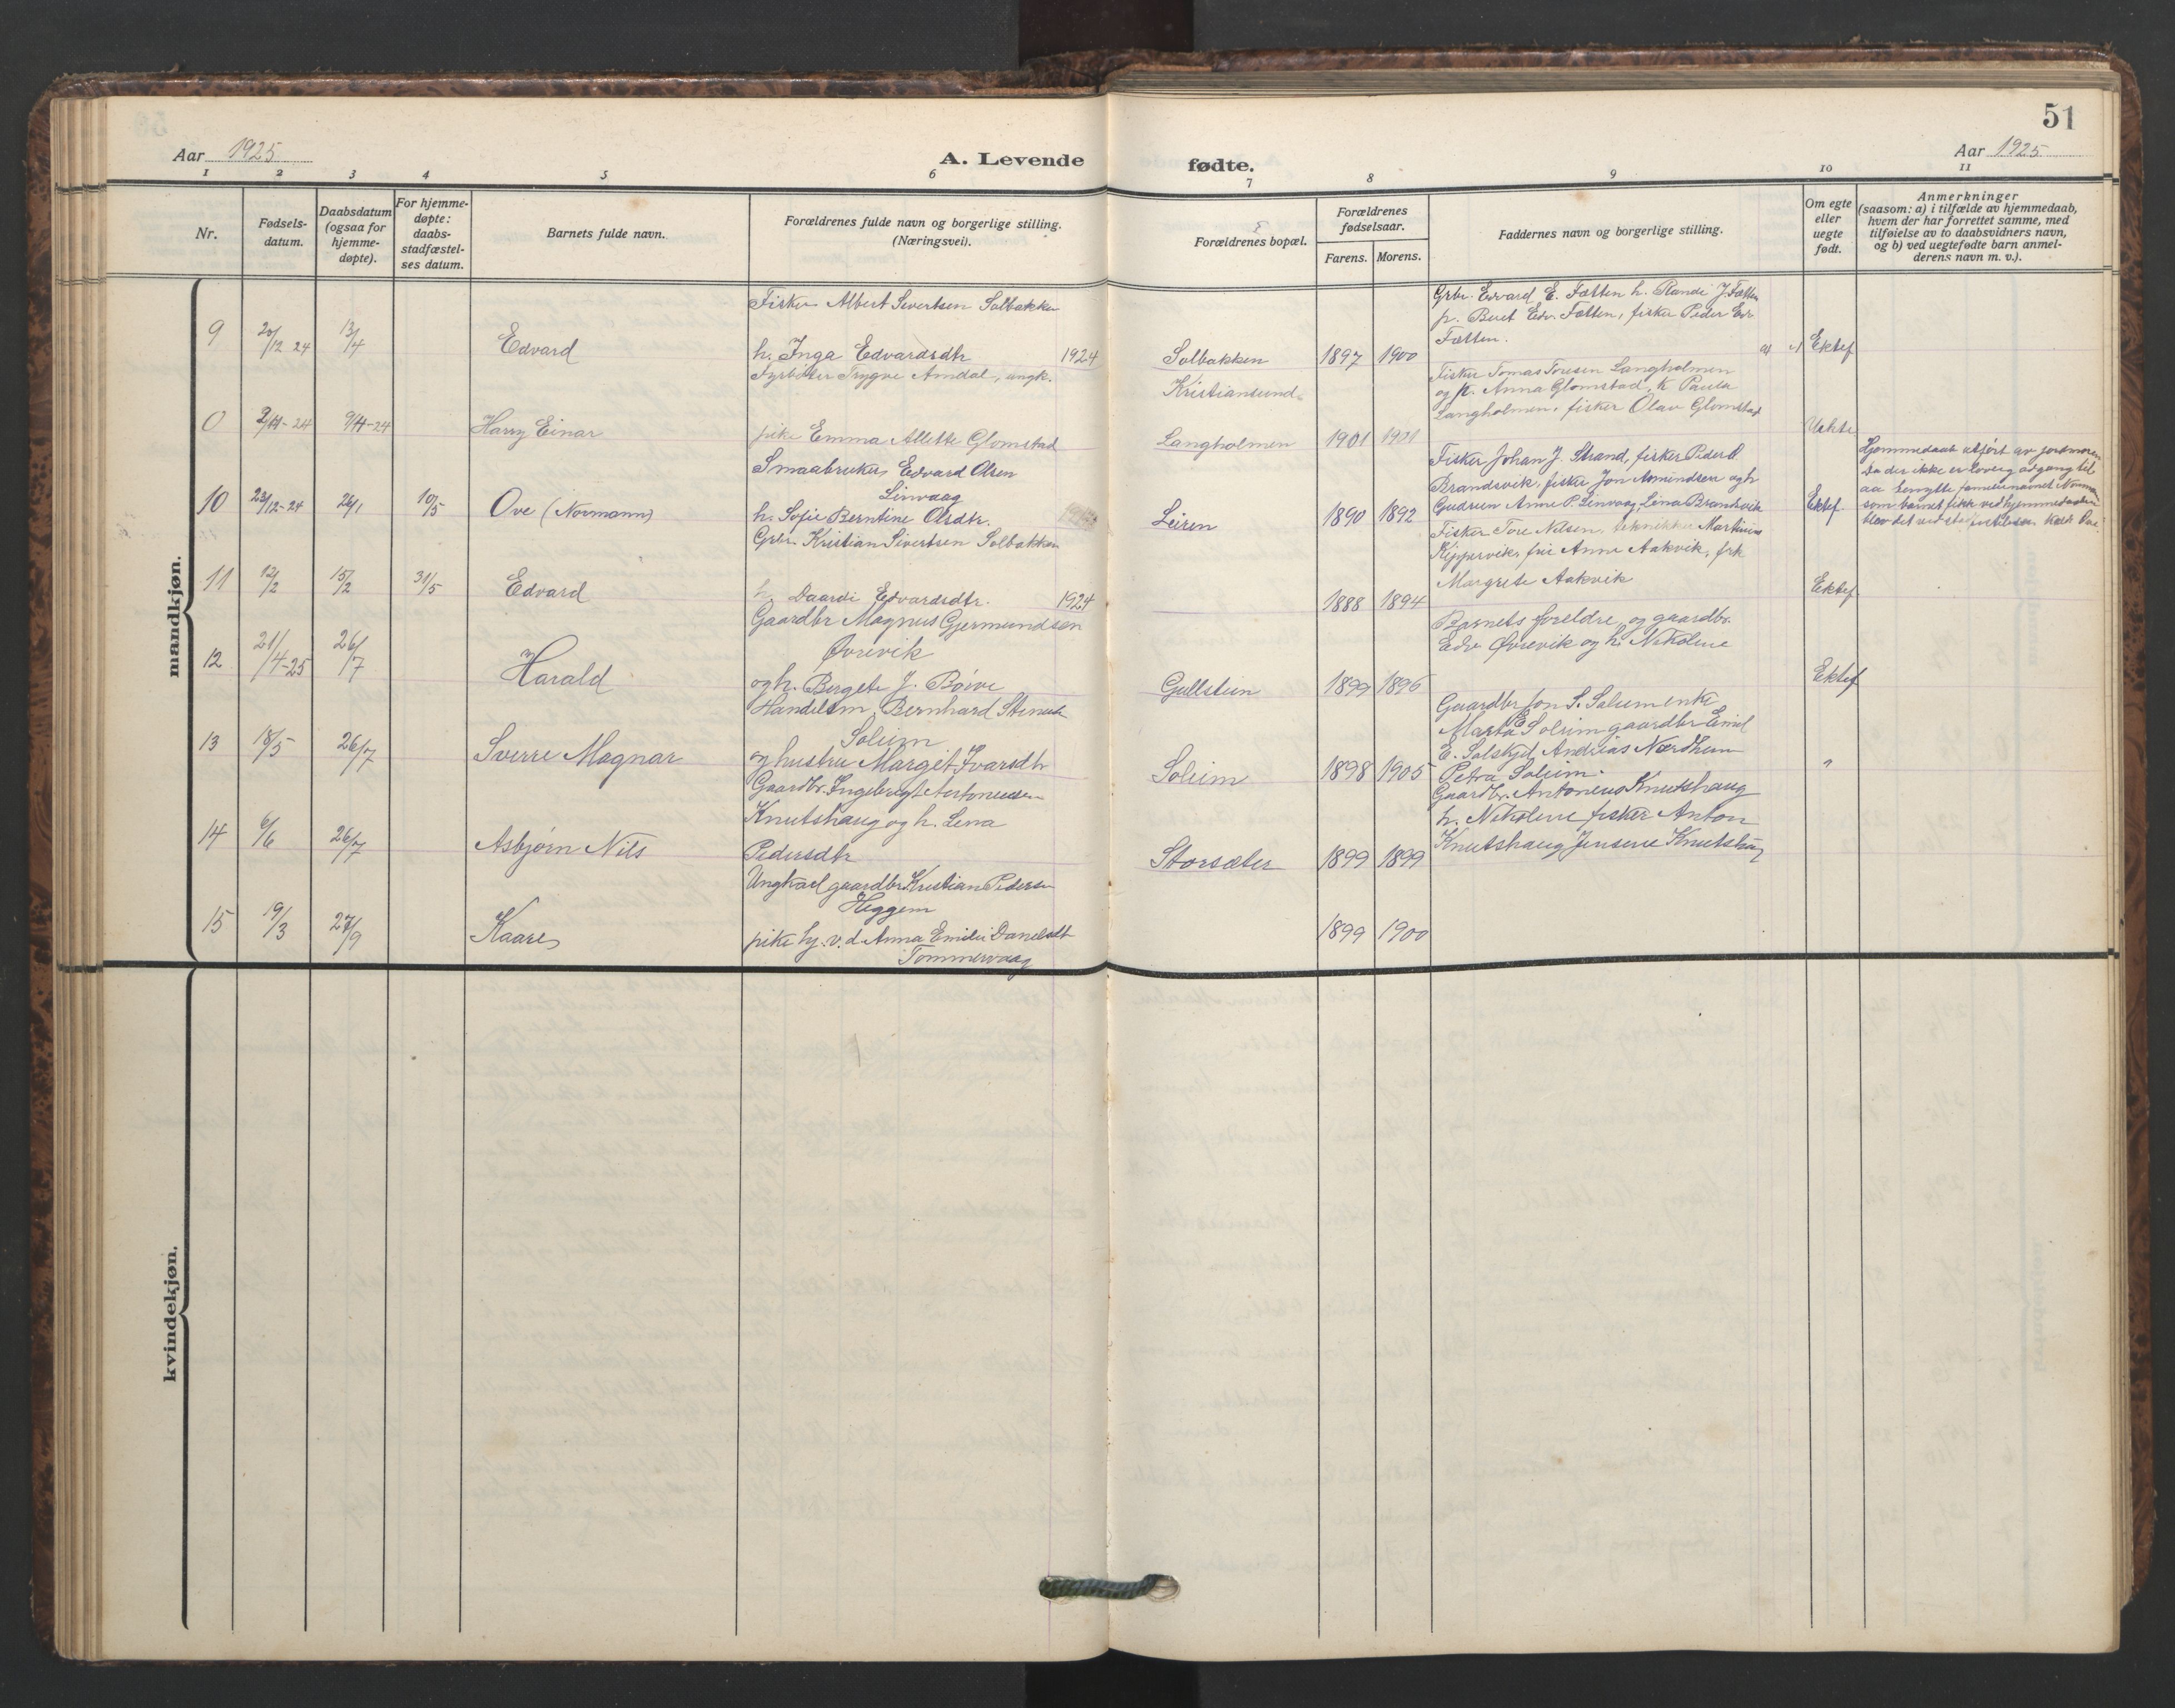 51
Aar 1925
A. Levende
fødte.
Aar 1925
1 2 3 4 5 6 7 8 9 10 11
Nr.
Fødsels-
datum.
Daabsdatum
(ogsaa for
hjemme-
døpte).
For hjemme-
døpte:
daabs-
stadfæstel-
ses datum.
Barnets fulde navn.
Forældrenes fulde navn og borgerlige stilling.
(Næringsvei).
Forældrenes bopæl.
Forældrenes
fødselsaar.
Farens. Morens.
Faddernes navn og borgerlige stilling.
Om egte
eller
uegte
født.
Anmerkninger
(saasom: a) i tilfælde av hjemmedaab,
hvem der har forrettet samme, med
tilføielse av to daabsvidners navn,
og b) ved uegtefødte barn anmel-
derens navn m. v.).
mandkjøn.
9 20/12 24 13/4 Edvard
Fisker Albert Sivertsen Solbakken
h. Inga Edvardsdtr 1924
Solbakken 1897 1900
Grbr. Edvard E. Fætten h. Rande J. Fætten
p. Buet Edv. Fætten, fisker Peder Edv
Fætten.
Ektef
0 2/11-24 9/11-24 Harry Einar
Fyrbøter Trygve Amdal, ungk.
pike Emma Allette Glomstad
Kristiansund
Langholmen 1901 1901
Fisker Tomas Toresen Langholmen
og p. Anna Glomstad, k Paula
Langholmen, fisker Olav Glomstad
Uekte
10 23/12-24 26/1 10/5 Ove (Normann)
Smaabruker Edvard Olsen
Linvaag
h. Sofie Berntine Olsdtr.
Leiren 1890 1892
Fisker Johan J. Strand, fisker Peder O
Brandsvik, fisker Jon Asmundsen og h
Gudrun Anne P. Linvaag Lina Brandsvik
Ektef
Hjemmedaab utført av jordmoren
Da der ikke er lovlig adgang til
aa benytte familienavnet Norman
som barnet fikk ved hjemmedaaben
blev det ved stadfestelsen kaldt Ove
11 12/2 15/2 31/5 Edvard
Grbr. Kristian Sivertsen Solbakken
h. Daardi Edvardsdtr. 1924
1888 1894
Fisker Tore Nilsen, tekniker Martinus
Kippervik, frue Anne Aakvik, frk
Margrete Aakvik
Ektef
12 21/4-25 26/7 Harald
Gaardbr Magnus Gjermundsen
Øvrevik
og h. Bergete J. Bøive
Gullstein 1899 1896
Barnets foreldre, og gaardbr.
Edv Øvrevik og h. Nikoline
Ektef
13 18/5 26/7 Sverre Magnar
Handelsm. Bernhard
Soleim
og hustru Margit Ivarsdtr
Soleim 1898 1905
Gaardbr Jon S. Soleim enke
Marta E Soleim gaardbr Emil
E. Solskjel Andreas Nordheim
Petra Soleim.
"
14 6/6 26/7 Asbjørn Nils
Gaardbr. Ingebrigt Antoneusen
Knutshaug og h. Lena
Pedersdtr
Storsæter 1899 1899
Gaardbr. Antoneus Knutshaug
h. Nikoline fisker Anton
Knutshaug Jensine Knutshaug
15 19/3 27/9 Kaare
Ungkarl gaardbr Kristian Pedersen
Heggem
pike hj. v. d. Anna Emilie Danelsdtr
Tommervaag
1899 1900
kvindekjøn.